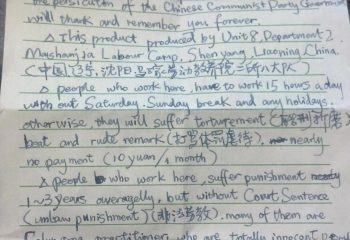 the persecution of the Chinese Communist Party Government
will thank and remember you forever.
△ This product produced by Unit 8, Department 2
Mashanjia Labour Camp, Shenyang, Liaoning, China.
(中国 辽宁, 沈阳, 马三家劳动教养院二所八大队)
△ people who work here, have to work 15 hours a day
with out Saturday. Sunday break and any holidays.
otherwise, they will suffer torturement
beat and rude remark (打骂体罚虐待) nearly
no payment (10 yuan / 1 month)
△ people who work here, suffer punishment
1~3 years averagelly, but without Court Sentence
(unlaw punishment) (非法劳教). many of them are
who are totally innocent